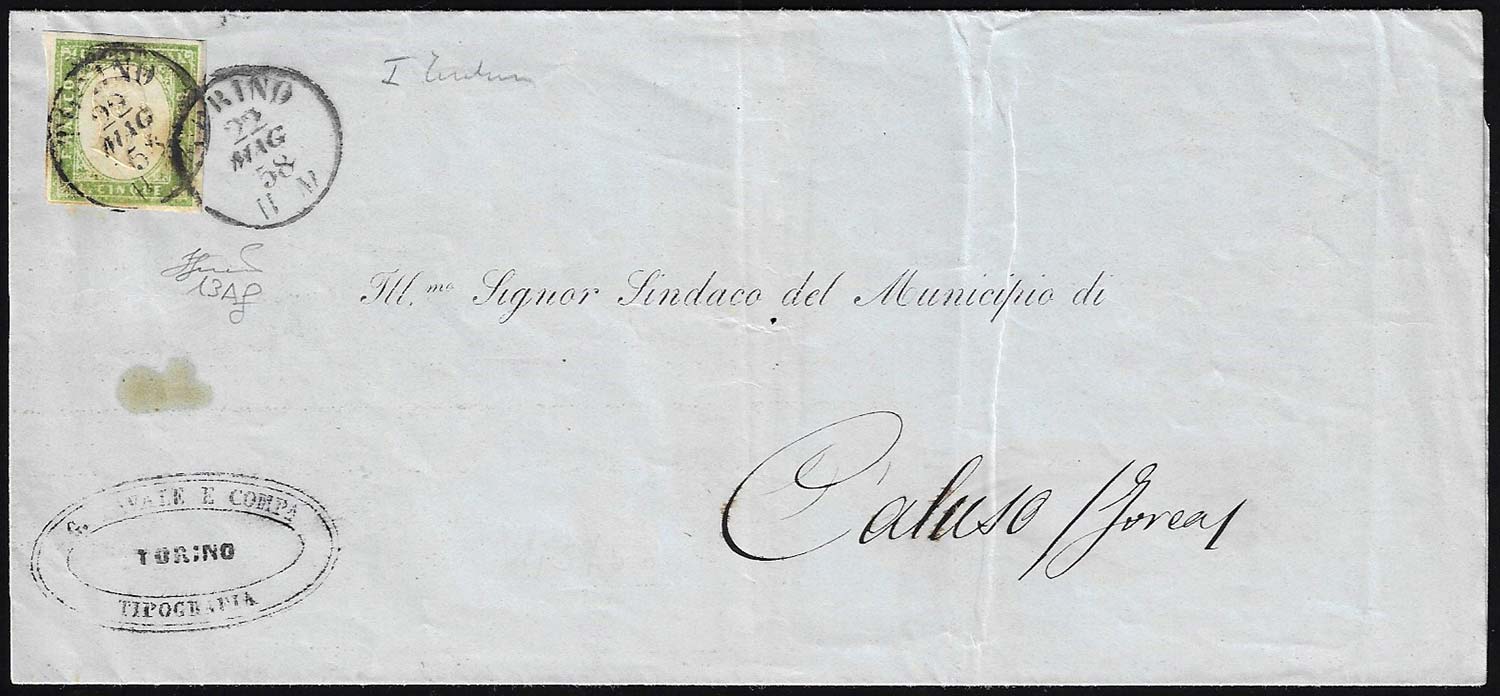 TORINO
22
MAG
58
11 M
CINQUE
13Ag
Ill.mo Signor Sindaco del Municipio di
Caluso (Ivrea)
E COMPA
TORINO
TIPOGRAFIA